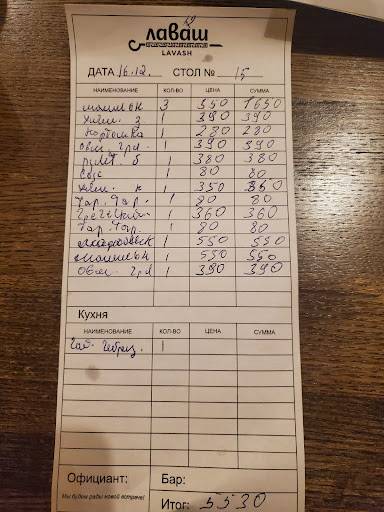 лаваш
LAVASH
ДАТА 16.12. СТОЛ № 15
НАИМЕНОВАНИЕ КОЛ-ВО ЦЕНА СУММА
3 550 1650
1 390 390
1 280 280
Овощ. грд. 1 390 390
Рулет. б 1 380 380
Соус 1 80 80
к 1 350 350
Тар. Тар. 1 80 80
Греческий 1 360 360
Тар. Тар. 1 80 80
1 550 550
1 550 550
Овощ. грд 1 390 390
Кухня
НАИМЕНОВАНИЕ КОЛ-ВО ЦЕНА СУММА
Чай. 1
Официант: Бар:
Мы будем рады новой встрече! Итог: 5530